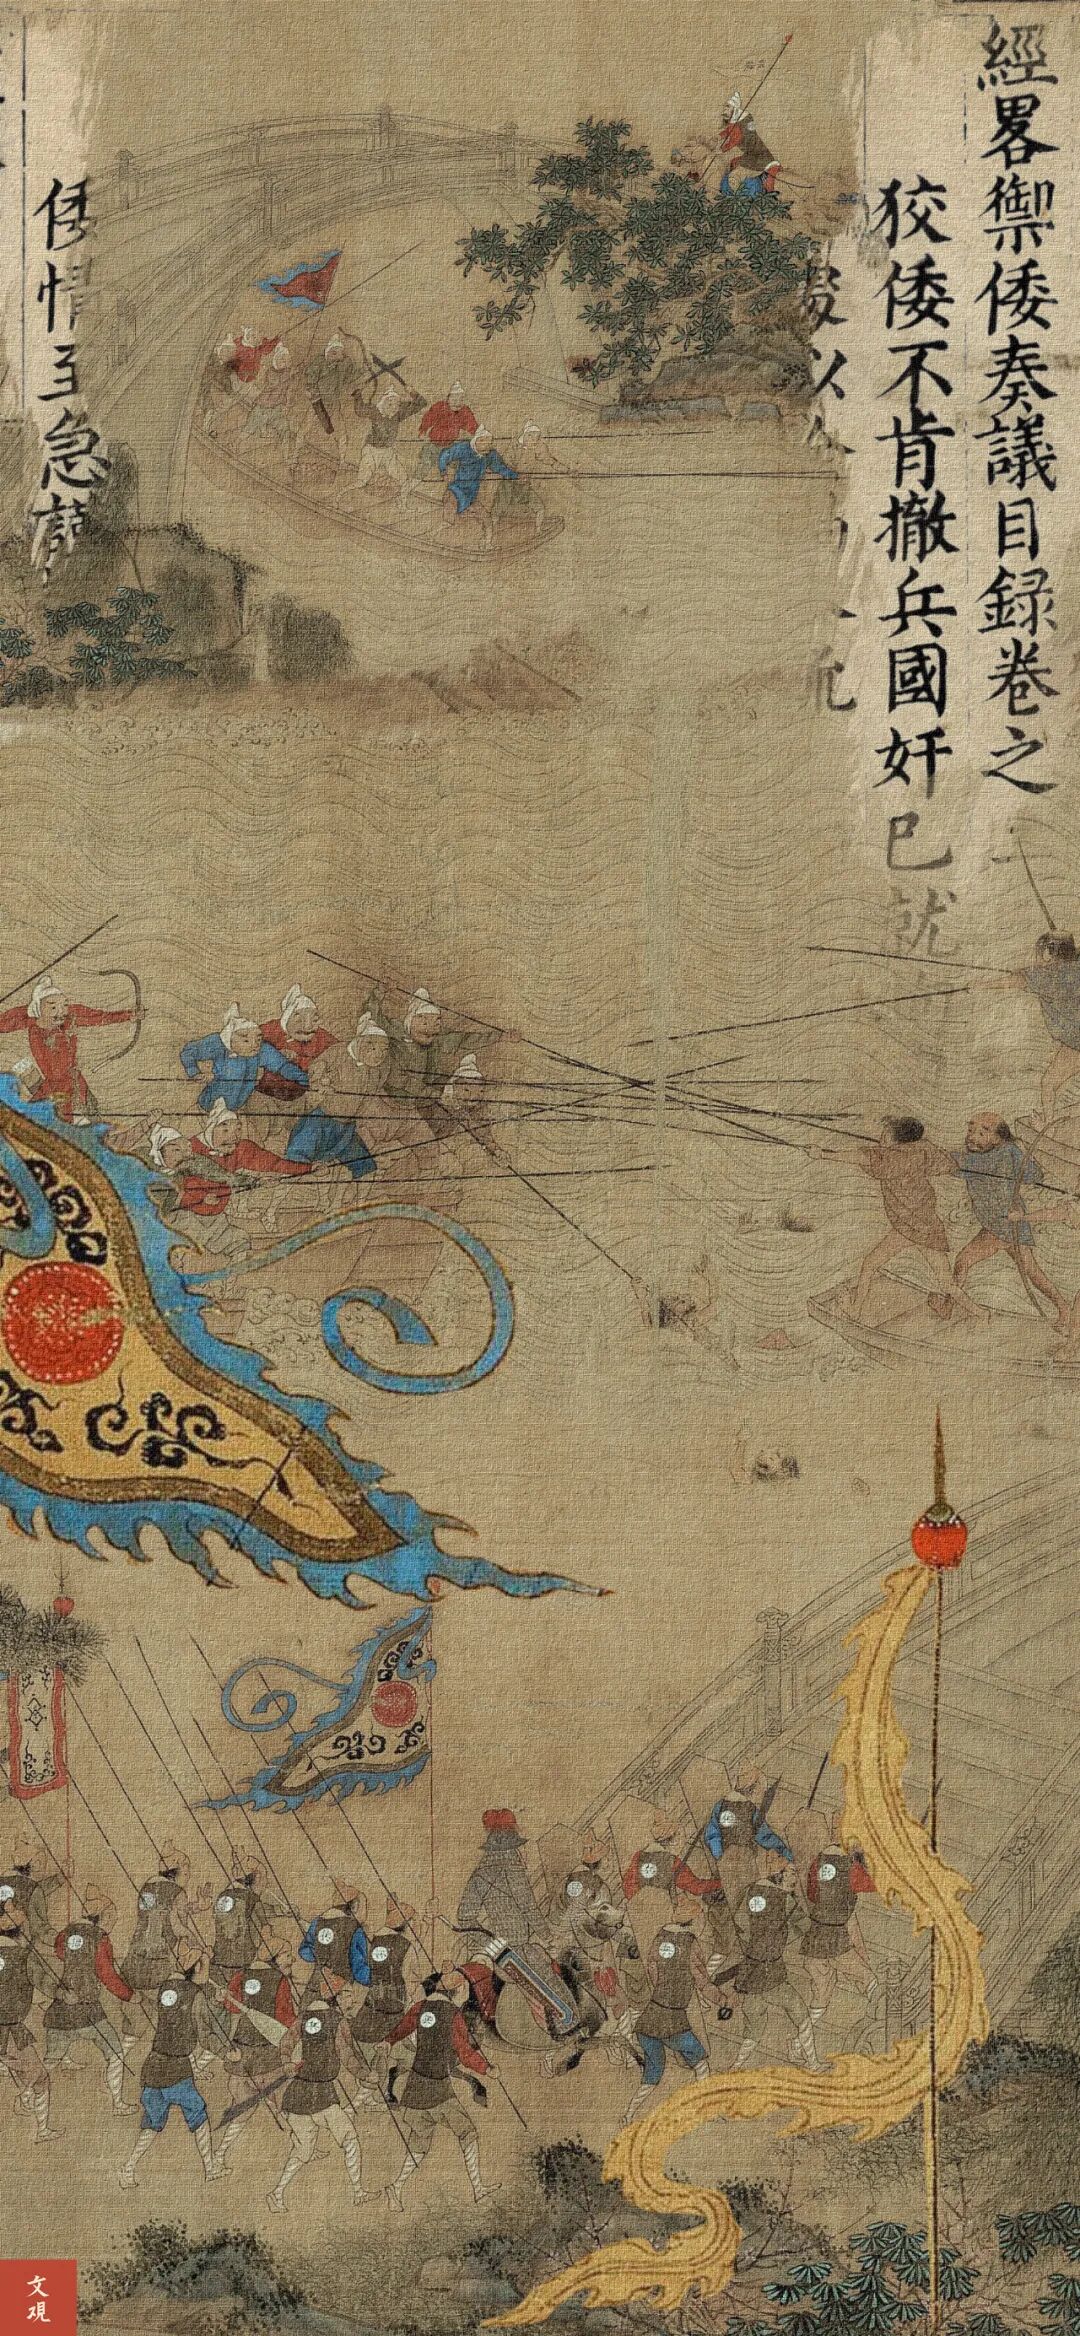 經畧禦倭奏議目録卷之
狡倭不肯撤兵國奸已就
以
倭情至急
文观